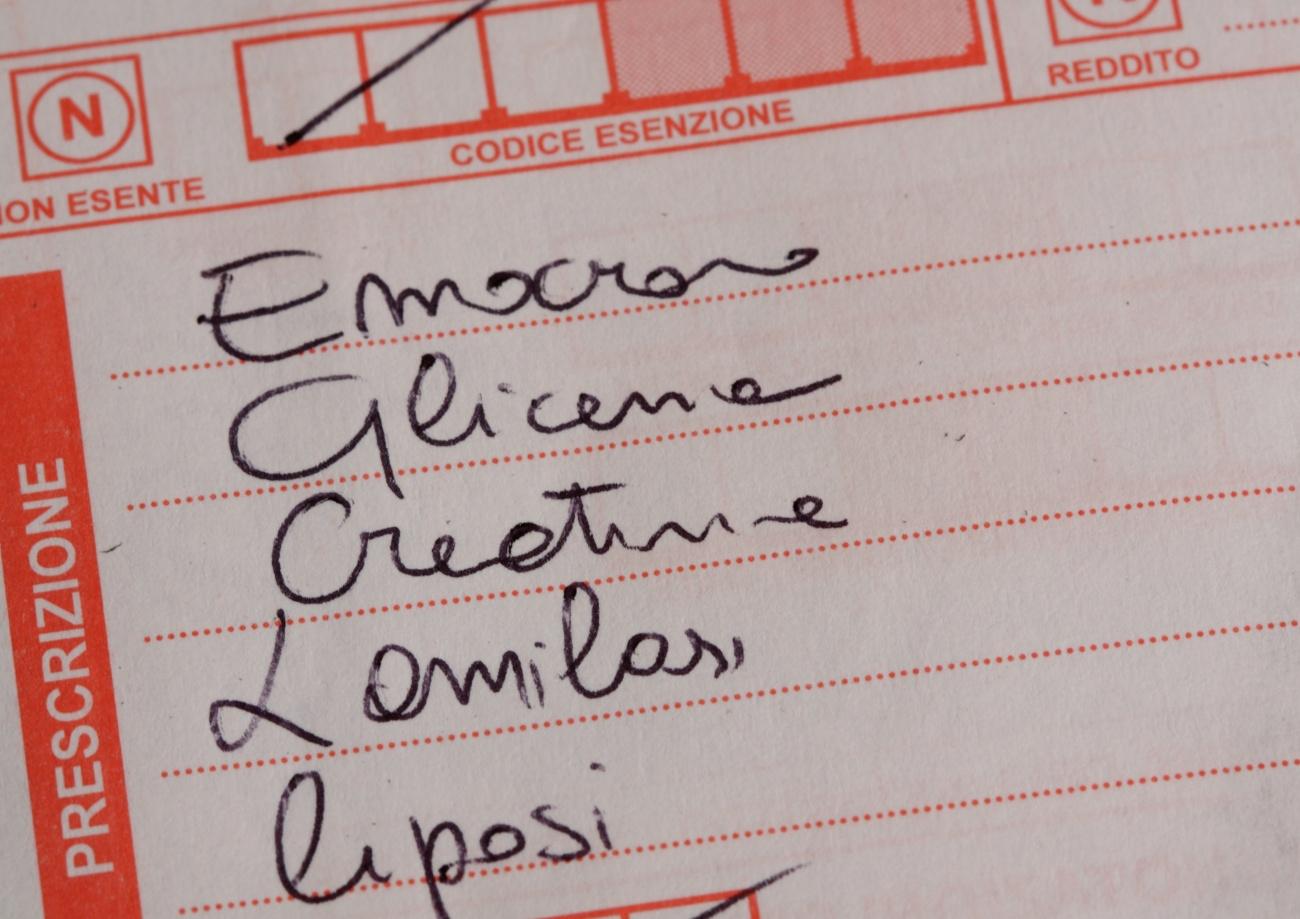 N
NON ESENTE
CODICE ESENZIONE
REDDITO
PRESCRIZIONE
Emocromo
Glicemia
Creatinine
L amilasi
lipasi